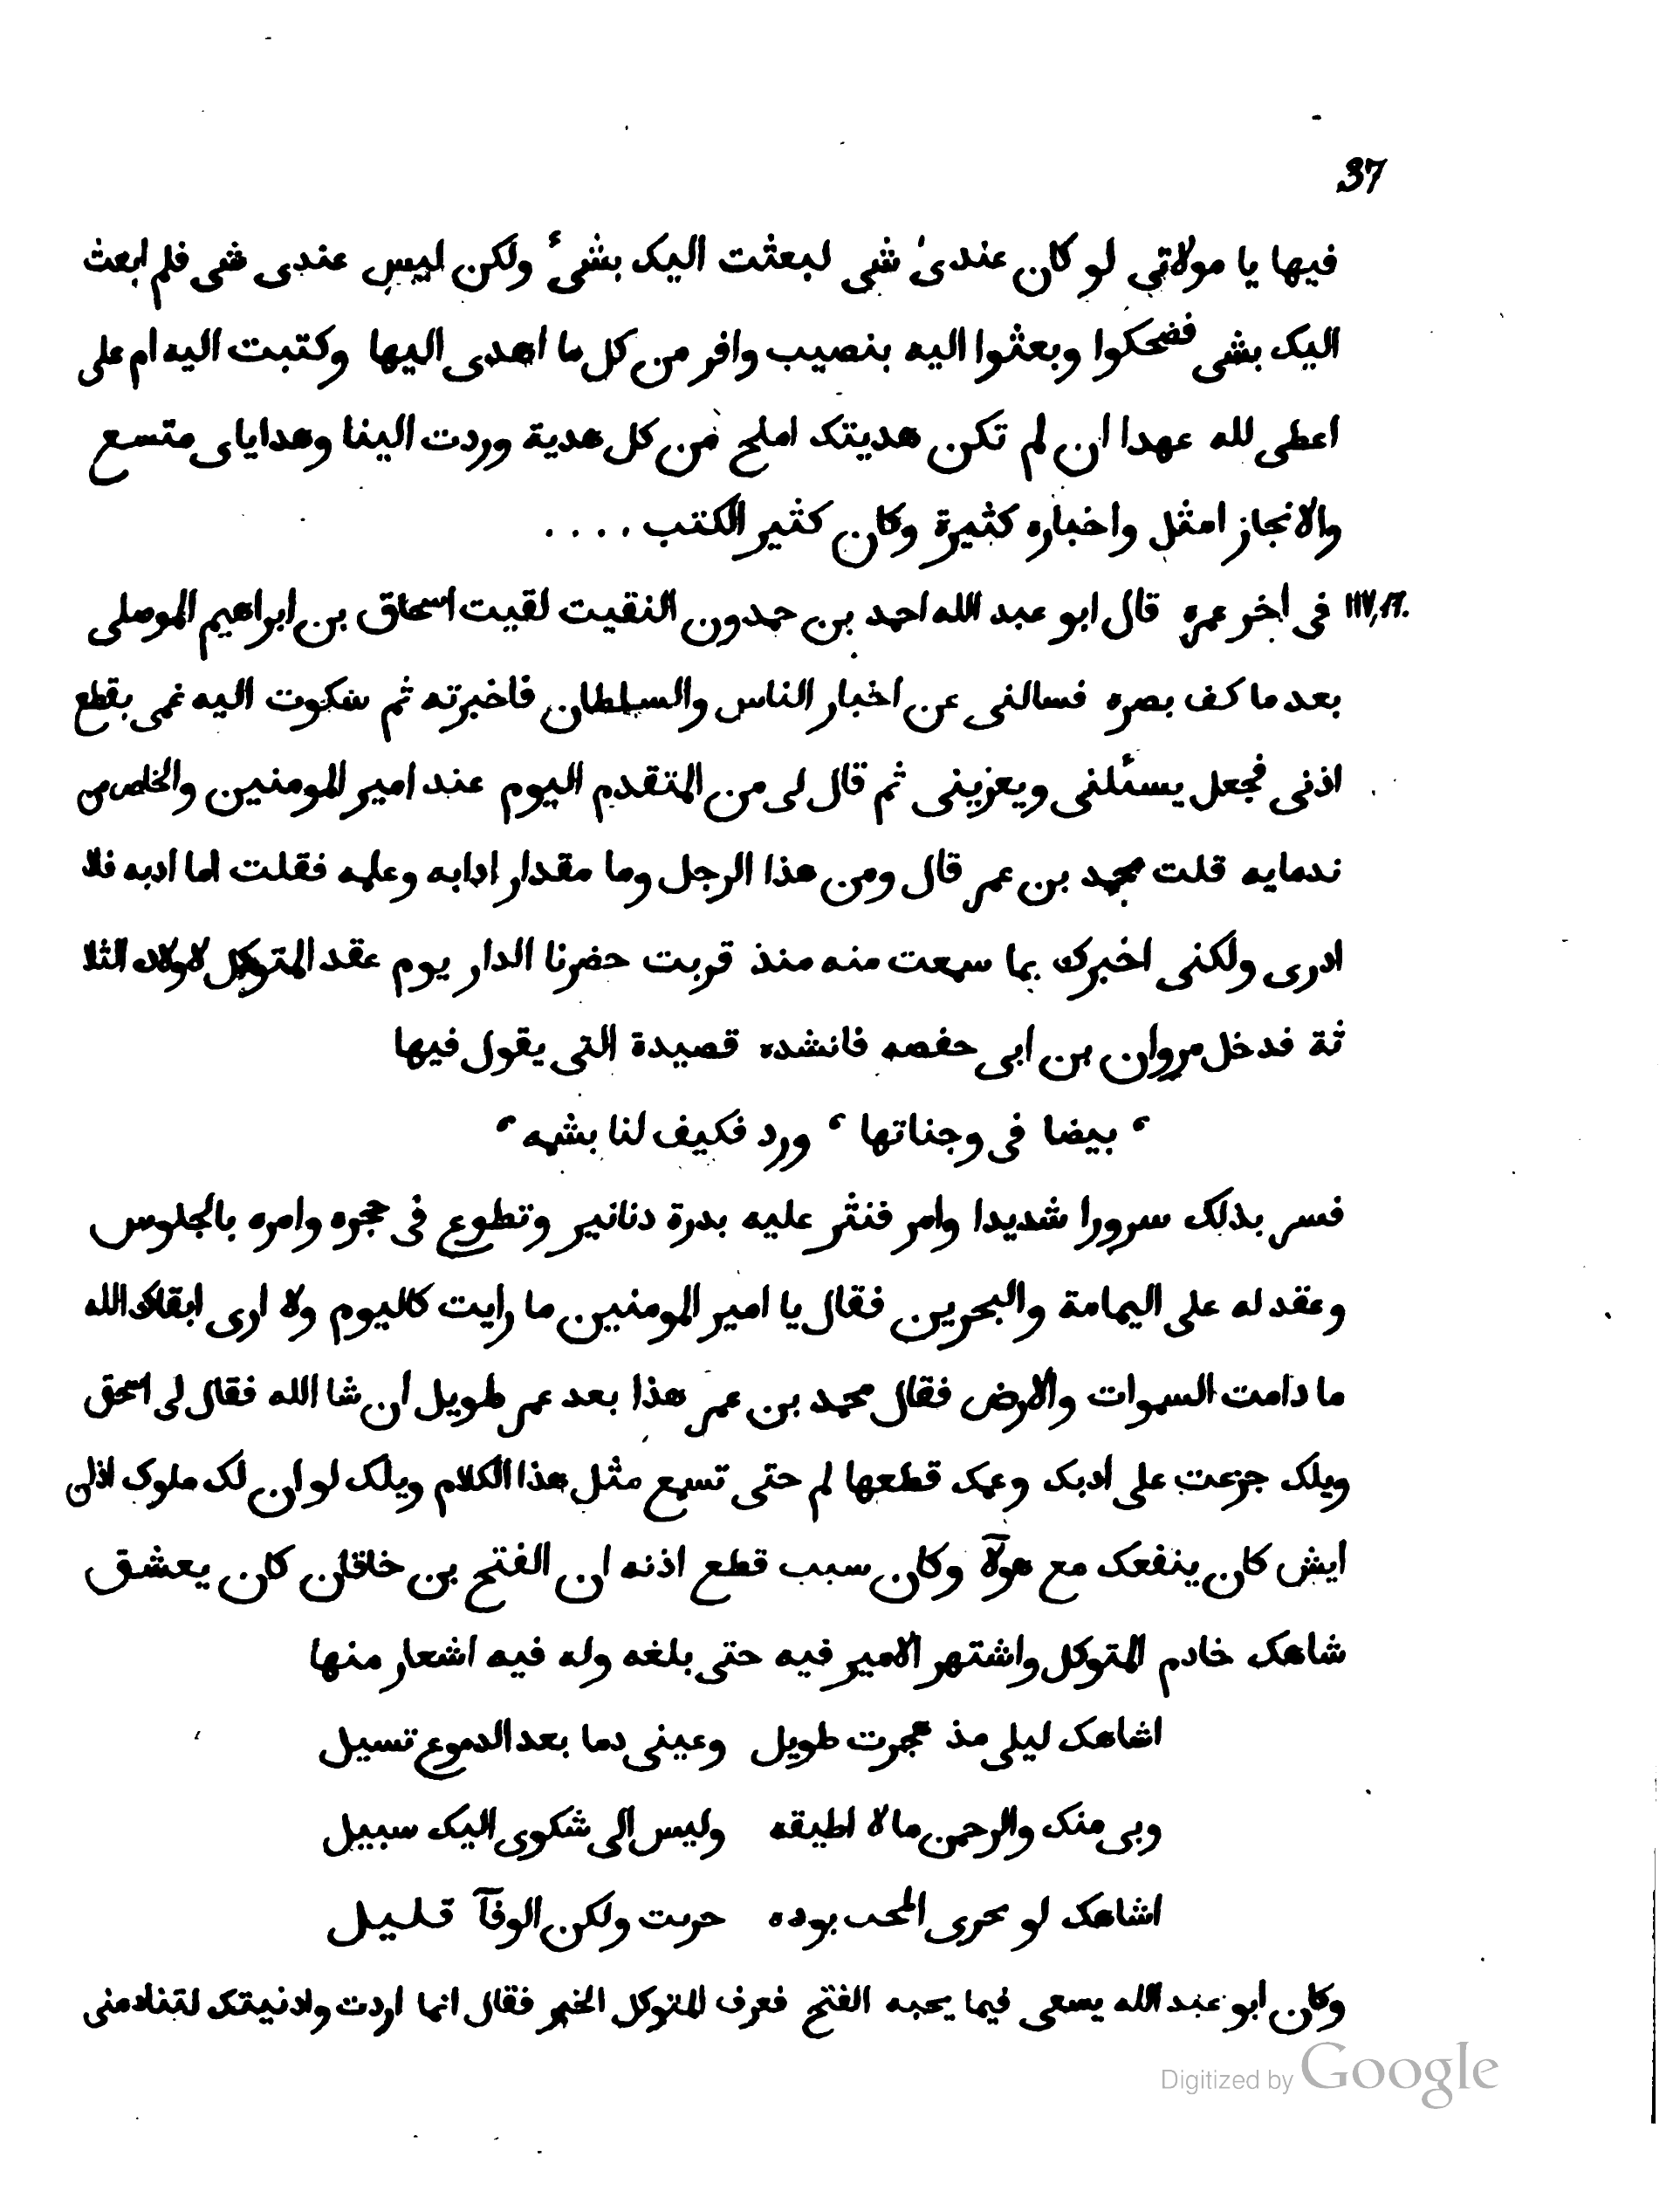 37
فيها يا مولاتي لو كان عندى شى لبعثت اليك بشىء ولكن ليس عندى شى فلم ابعث
اليك بشى فضحكوا وبعثوا اليه بنصيب وافر من كل ما اهدى اليها وكتبت اليه ام على
اعطى لله عهدا ان لم تكن هديتك املح من كل هدية وردت الينا وهداياى متسع
والانجاز امثل واخباره كثيرة وكان كثير الكتب ....
فى اخر عمره قال ابو عبد الله احمد بن حمدون النقيت لقيت اسحاق بن ابراهيم الموصلى
بعد ما كف بصره فسالنى عن اخبار الناس والسلطان فاخبرته ثم شكوت اليه غمى بقطع
اذنى فجعل يسئلنى ويعزينى ثم قال لى من المتقدم اليوم عند امير المومنين والخاص من
ندمايه قلت محمد بن عمر قال ومن هذا الرجل وما مقدار ادابه وعلمه فقلت اما ادبه فلا
ادرى ولكنى اخبرك بما سمعت منه منذ قربت حضرنا الدار يوم عقد المتوكل لاولاد الثلا
ثة فدخل مروان بن ابى حفصه فانشده قصيدة التى يقول فيها
، بيضا فى وجناتها ، ورد فكيف لنا بشمه ،
فسر بذلك سرورا شديدا وامر فنثر عليه بدرة دنانير وتطوع فى حجره وامره بالجلوس
وعقد له على اليمامة والبحرين فقال يا امير المومنين ما رايت كاليوم ولا ارى ابقاك الله
ما دامت السموات والارض فقال محمد بن عمر هذا بعد عمر طويل ان شا الله فقال لى اسحق
ويلك جزعت على ادبك وغمك قطعها لم حتى تسمع مثل هذا الكلام ويلك لو ان لك ملوك اذلن
ايش كان ينفعك مع هولآ وكان سبب قطع اذنه ان الفتح بن خاقان كان يعشق
شاهك خادم المتوكل واشتهر الامير فيه حتى بلغه وله فيه اشعار منها
اشاهك ليلى مذ هجرت طويل وعينى دما بعد الدموع تسيل
وبى منك والرحمن ما لا اطيقه وليس الى شكوى اليك سبيل
اشاهك لو يجرى المحب بوده جريت ولكن الوفآ قليل
وكان ابو عبد الله يسعى فيما يحبه الفتح فعرف المتوكل الخبر فقال انما اردت ولدنيتك لتنادمنى
Digitized by Google